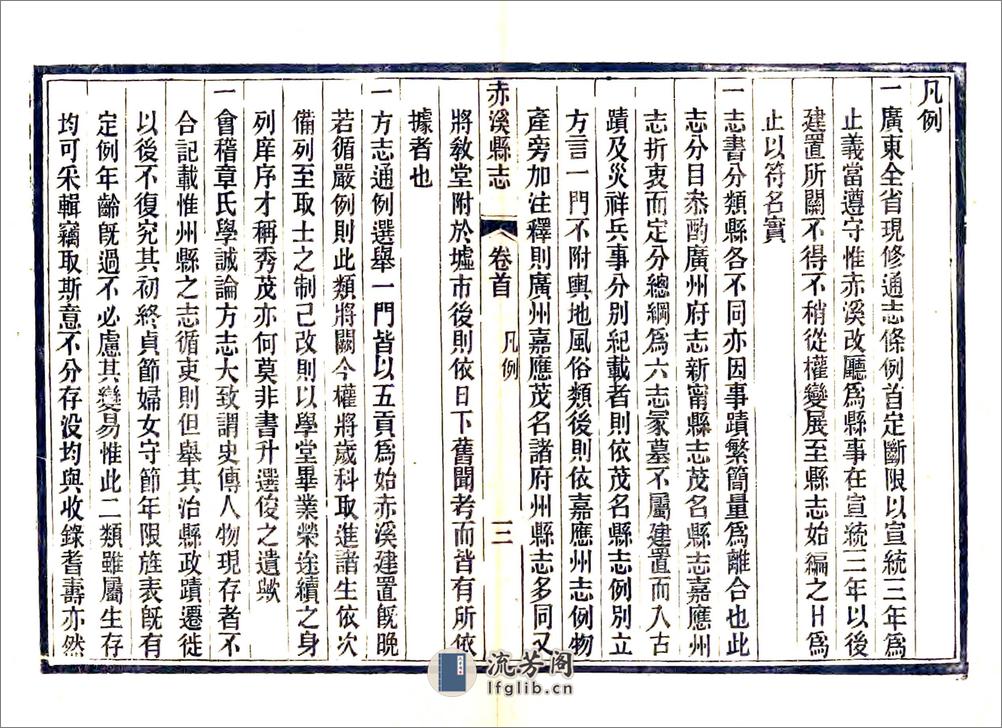 凡例
一廣東全省現修通志條例首定斷限以宣統三年爲
止義當遵守惟赤溪改廳爲縣事在宣統三年以後
建置所關不得不稍從權變展至縣志始編之日爲
止以符名實
一志書分類縣各不同亦因事蹟繁簡量爲離合也此
志分目叅酌廣州府志新甯縣志茂名縣志嘉應州
志折衷而定分總綱爲六志冢墓不屬建置而入古
蹟及災祥兵事分別紀載者則依茂名縣志例別立
方言一門不附輿地風俗類後則依嘉應州志例物
產旁加注釋則廣州嘉應茂名諸府州縣志多同又
赤溪縣志
卷首
凡例
三
將敎堂附於墟市後則依日下舊聞考而皆有所依
據者也
一方志通例選舉一門皆以五貢爲始赤溪建置旣晚
若循嚴例則此類將闕今權將歲科取進諸生依次
備列至取士之制已改則以學堂畢業榮途續之身
列庠序才稱秀茂亦何莫非書升選俊之遺歟
一會稽章氏學誠論方志大致謂史傳人物現存者不
合記載惟州縣之志循吏則但舉其治縣政蹟遷徙
以後不復究其初終貞節婦女守節年限旌表旣有
定例年齡旣過不必慮其變易惟此二類雖屬生存
均可采輯竊取斯意不分存没均與收錄耆壽亦然
流芳阁
lfglib.cn